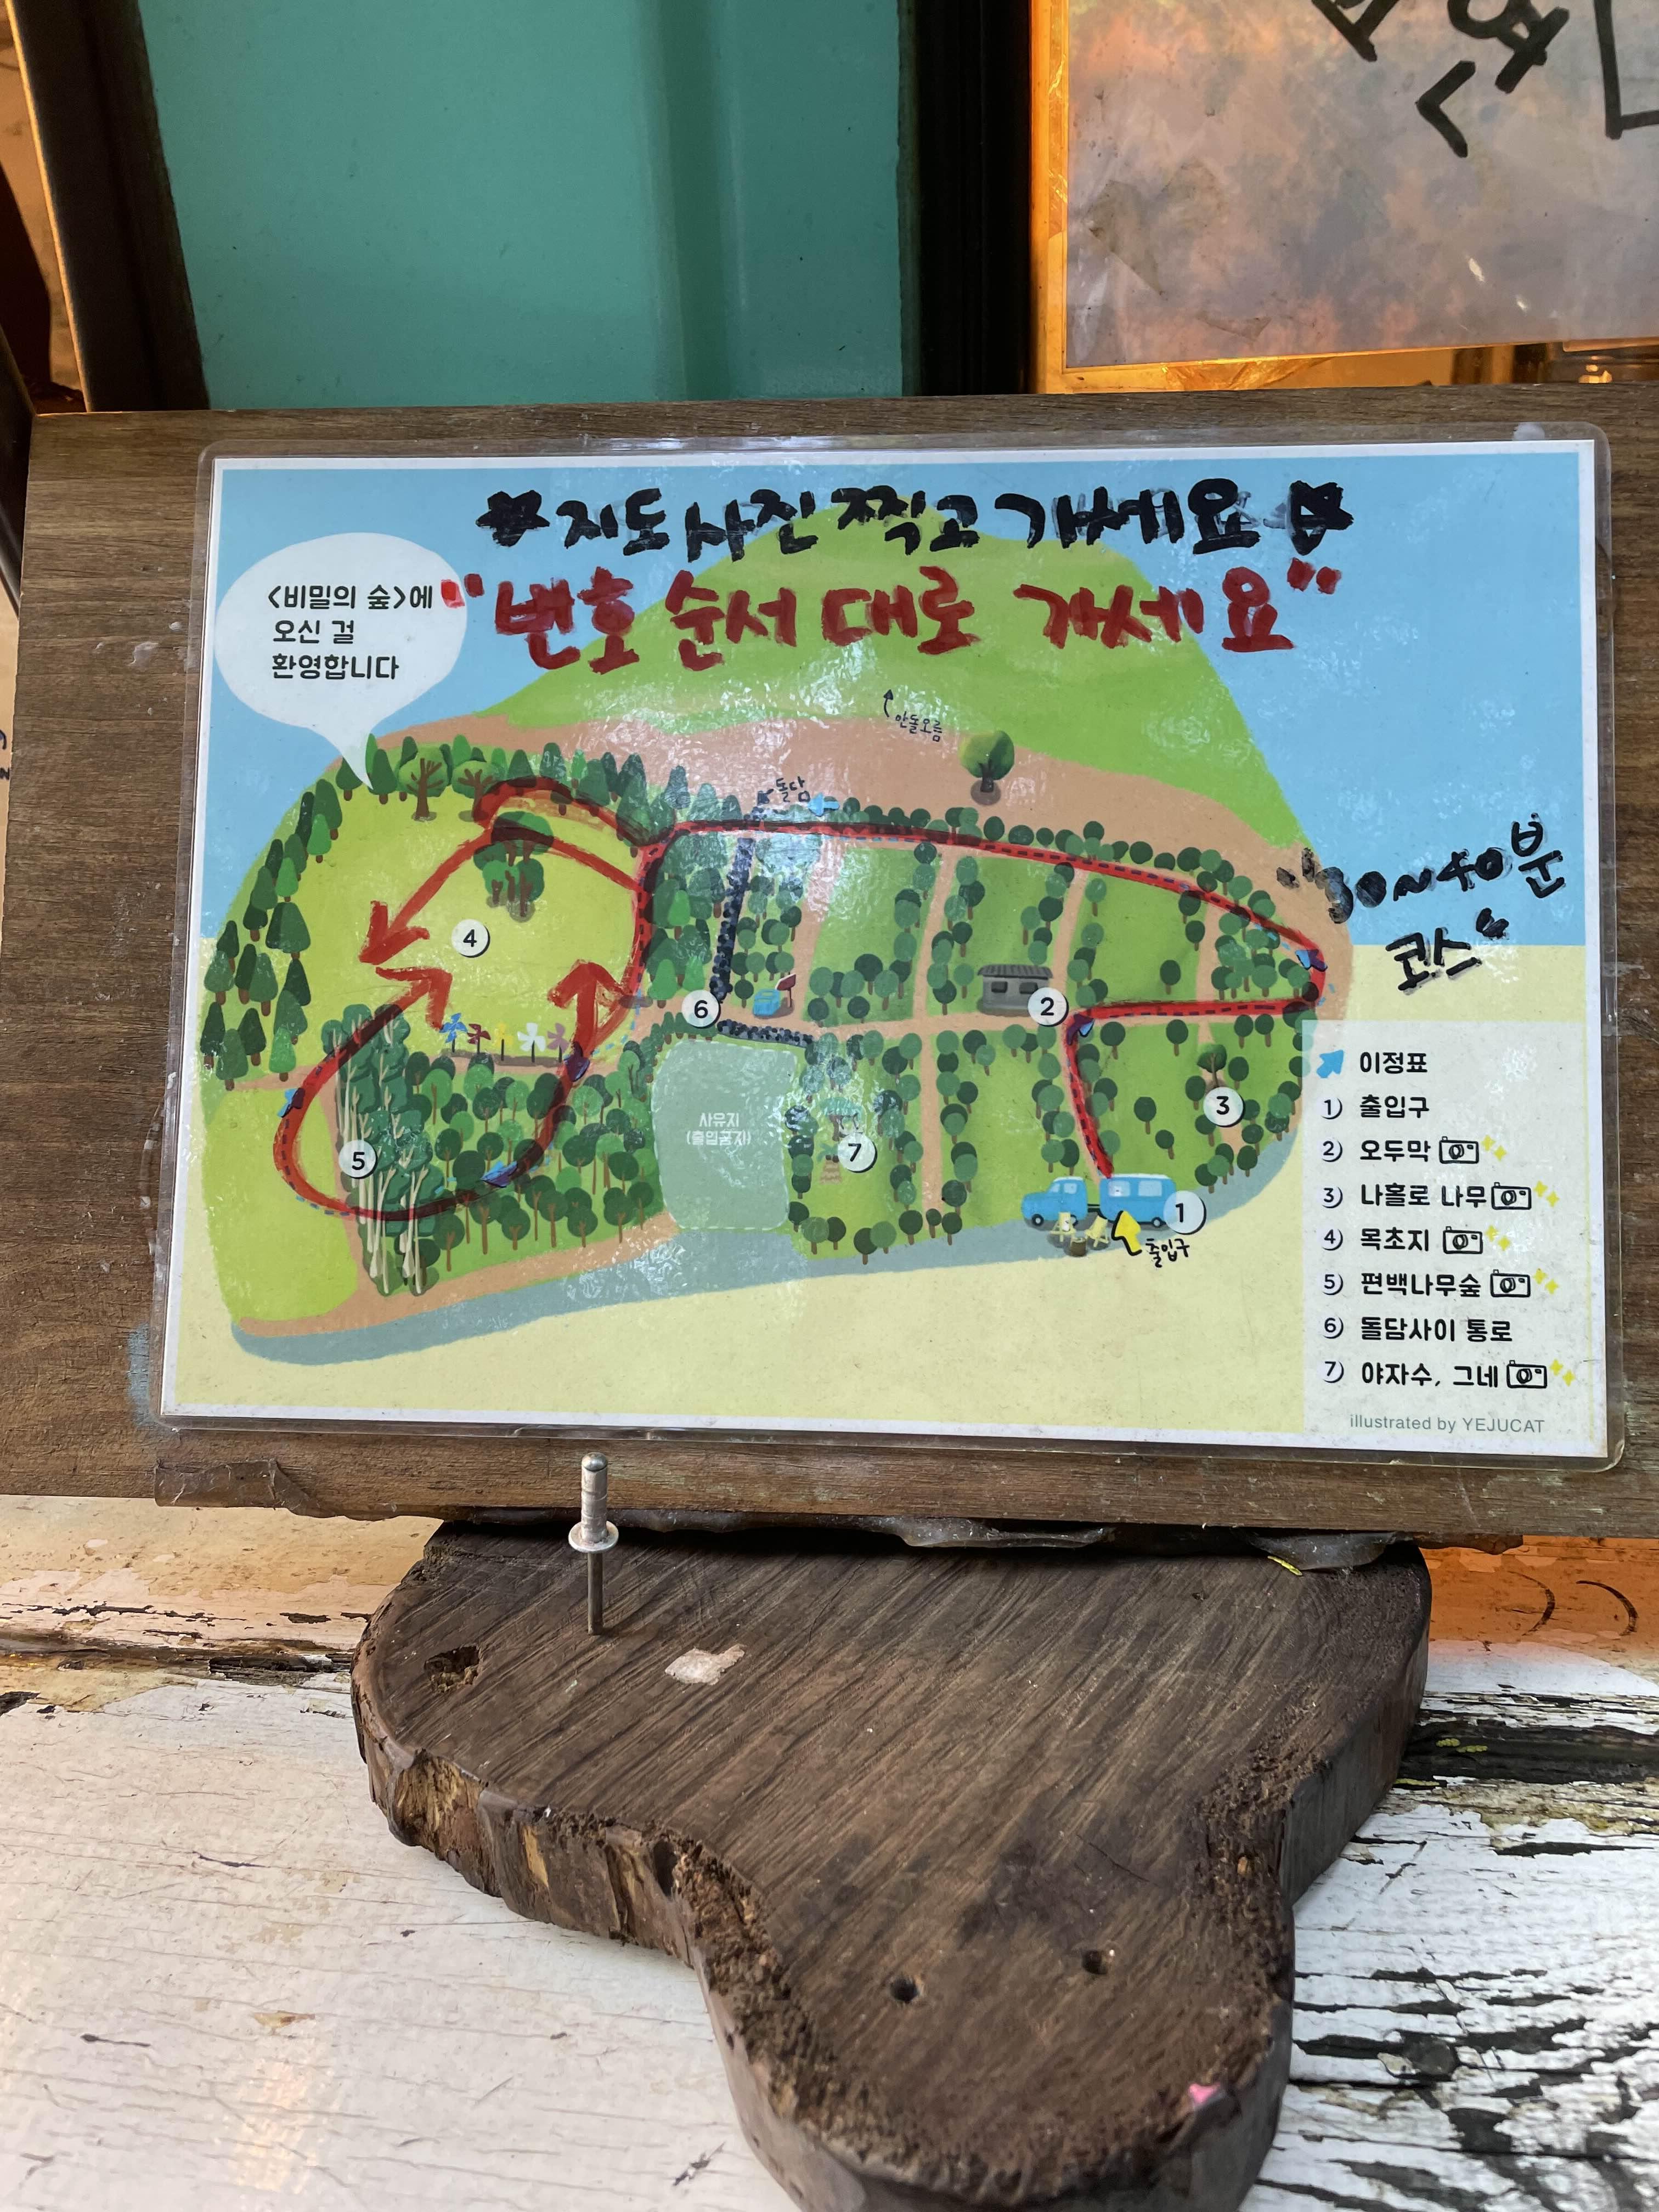 지도 사진 찍고 가세요
"번호 순서대로 가세요"
<비밀의 숲>에
오신 걸
환영합니다
안돌오름
돌담
"30~40분
코스"
4
6
2
3
5
7
1
사유지
(출입금지)
출입구
이정표
1) 출입구
2) 오두막
3) 나홀로 나무
4) 목초지
5) 편백나무숲
6) 돌담사이 통로
7) 야자수, 그네
illustrated by YEJUCAT